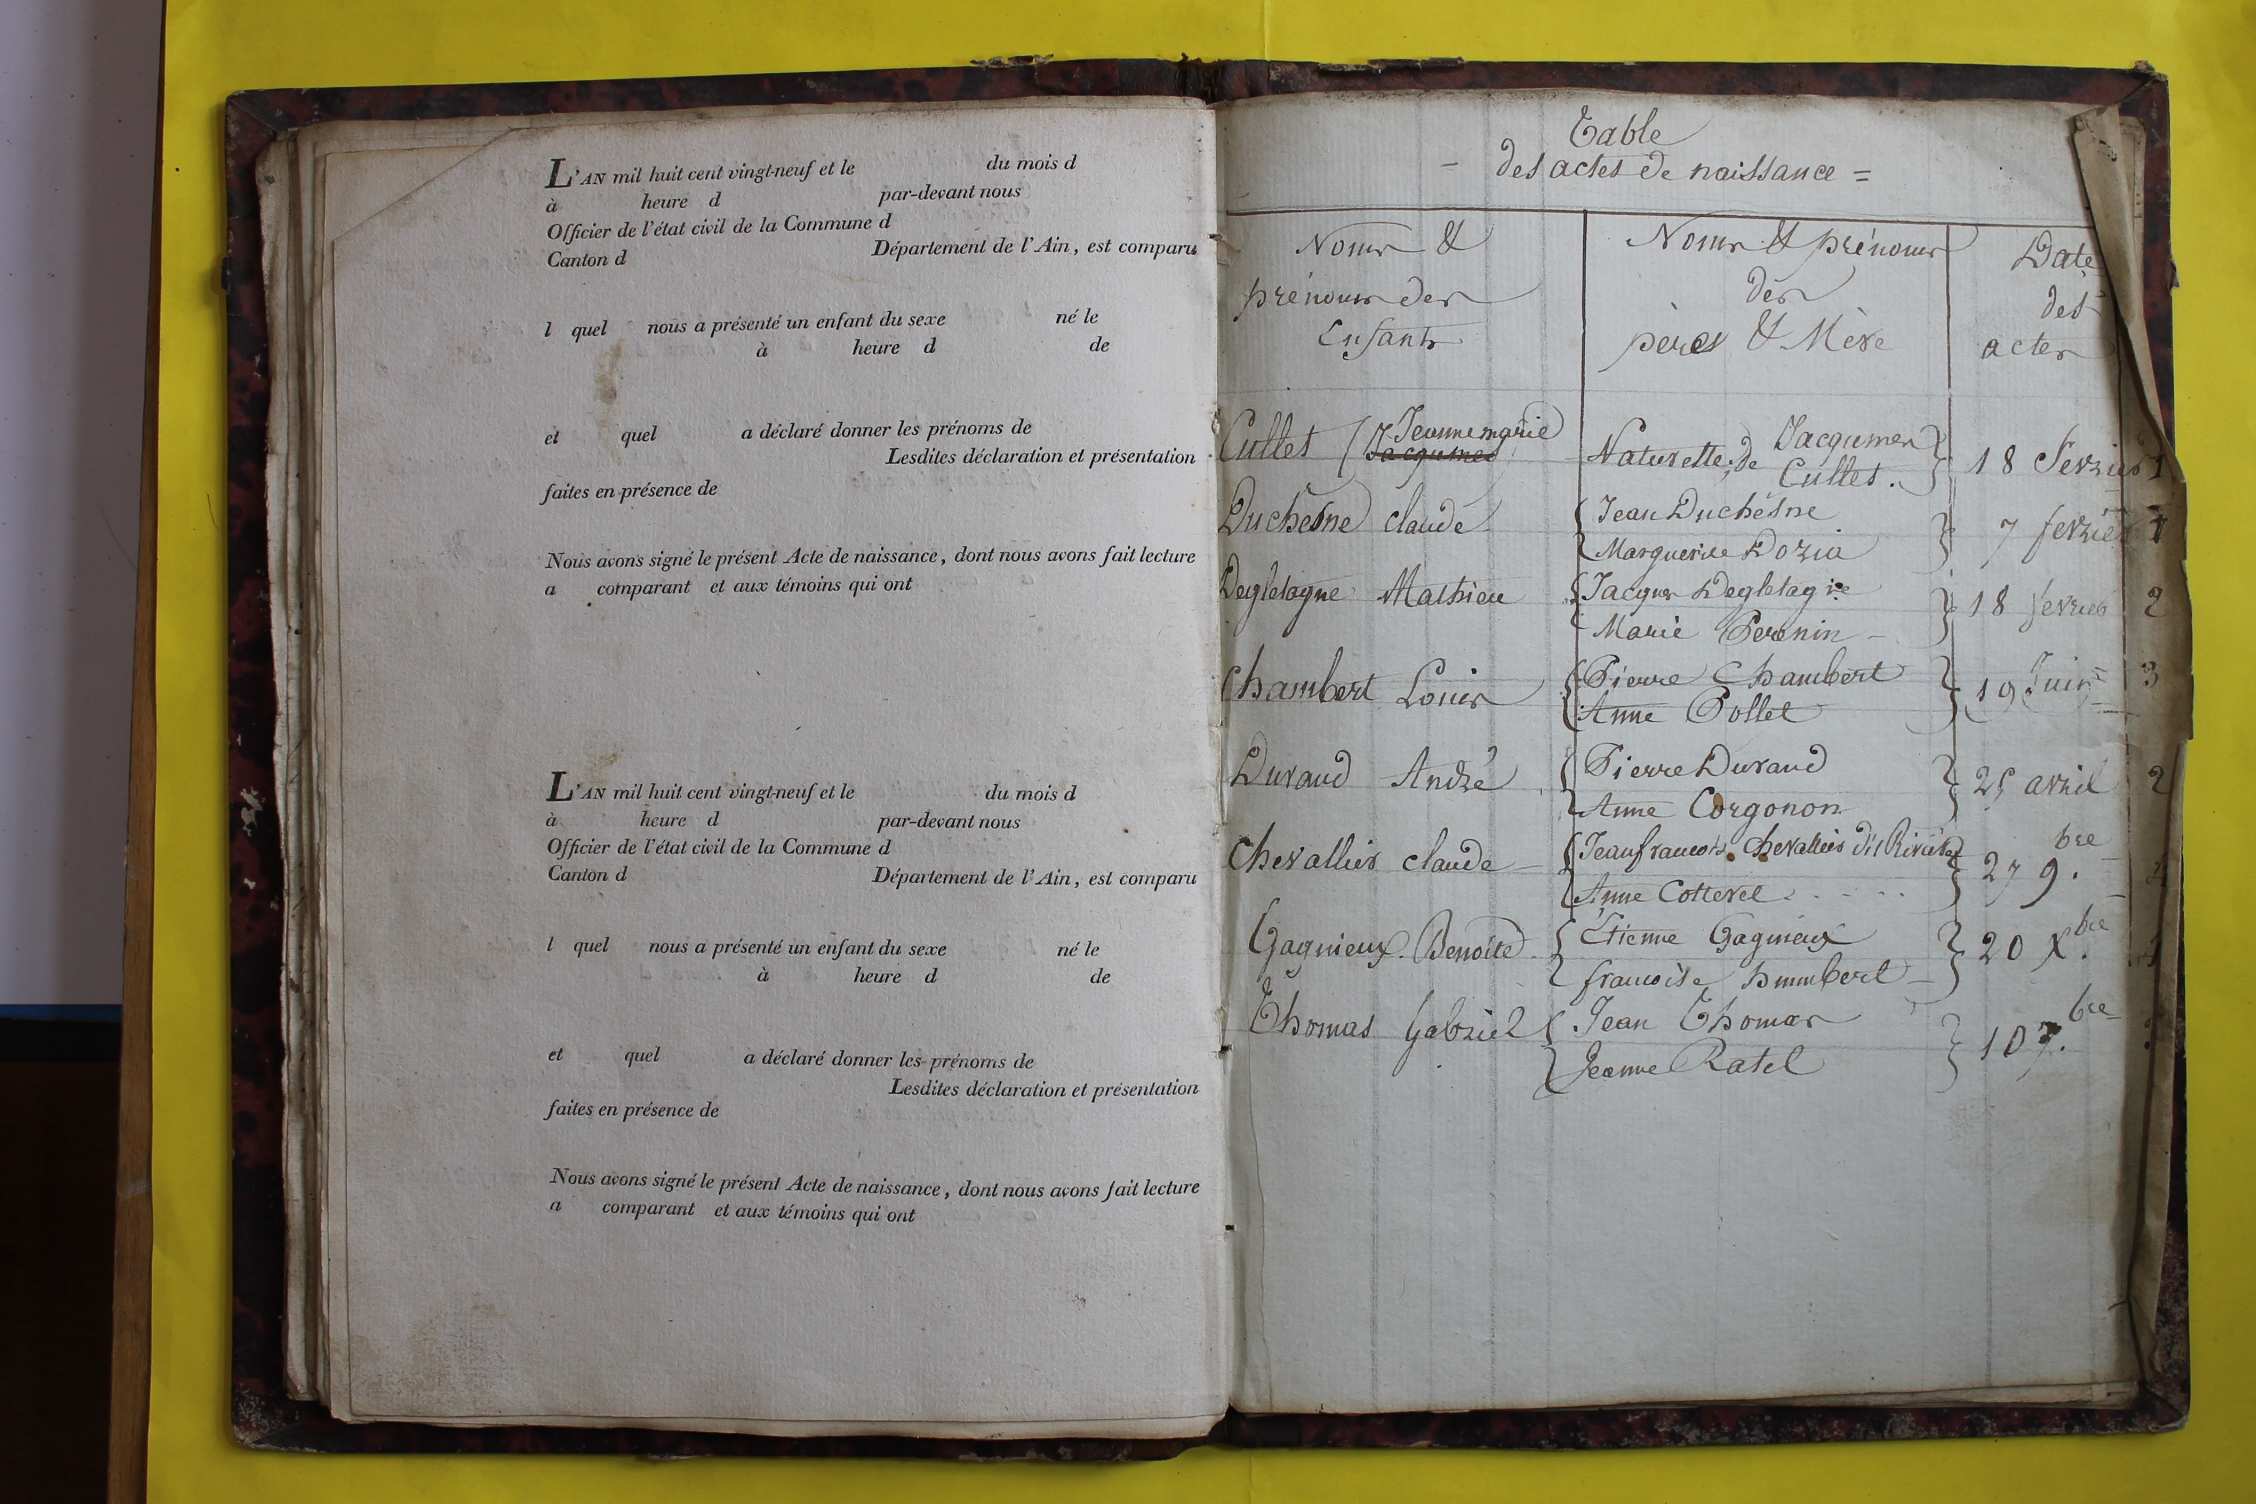 L'AN mil huit cent vingt-neuf et le du mois d
à heure d par-devant nous
Officier de l'état civil de la Commune d
Canton d Département de l'Ain, est comparu
l quel nous a présenté un enfant du sexe né le
à heure d de
et quel a déclaré donner les prénoms de
Lesdites déclaration et présentation
faites en présence de
Nous avons signé le présent Acte de naissance, dont nous avons fait lecture
a comparant et aux témoins qui ont
L'AN mil huit cent vingt-neuf et le du mois d
à heure d par-devant nous
Officier de l'état civil de la Commune d
Canton d Département de l'Ain, est comparu
l quel nous a présenté un enfant du sexe né le
à heure d de
et quel a déclaré donner les prénoms de
Lesdites déclaration et présentation
faites en présence de
Nous avons signé le présent Acte de naissance, dont nous avons fait lecture
a comparant et aux témoins qui ont
Table
- des actes de naissance =
Noms &
prénoms des
Enfants
Noms & prénoms
des
pères & Mère
Date
des
actes
Cullet Jeanne marie Naturelle de Jacqumes Cullet. 18 fevrier 1
Duchesne claude Jean Duchésne
Marguerite Dozia 7 fevrier 1
Degletagne Mathieu Jacques Degletagne
Marie Perenin 18 fevrier 2
Chambert Louis Pierre Chambert
Anne Pollet 19 Juin 3
Durand André Pierre Durand
Anne Corgonon 25 avril 2
Chevallier claude Jean francois Chevallier dit Rivière
Anne Cotterel 27 9.bre
Gagnieux Benoite Etienne Gagnieux
francoise humbert 20 X.bre
Thomas Gabriel Jean Thomas
Jeanne Ratel 10 7.bre